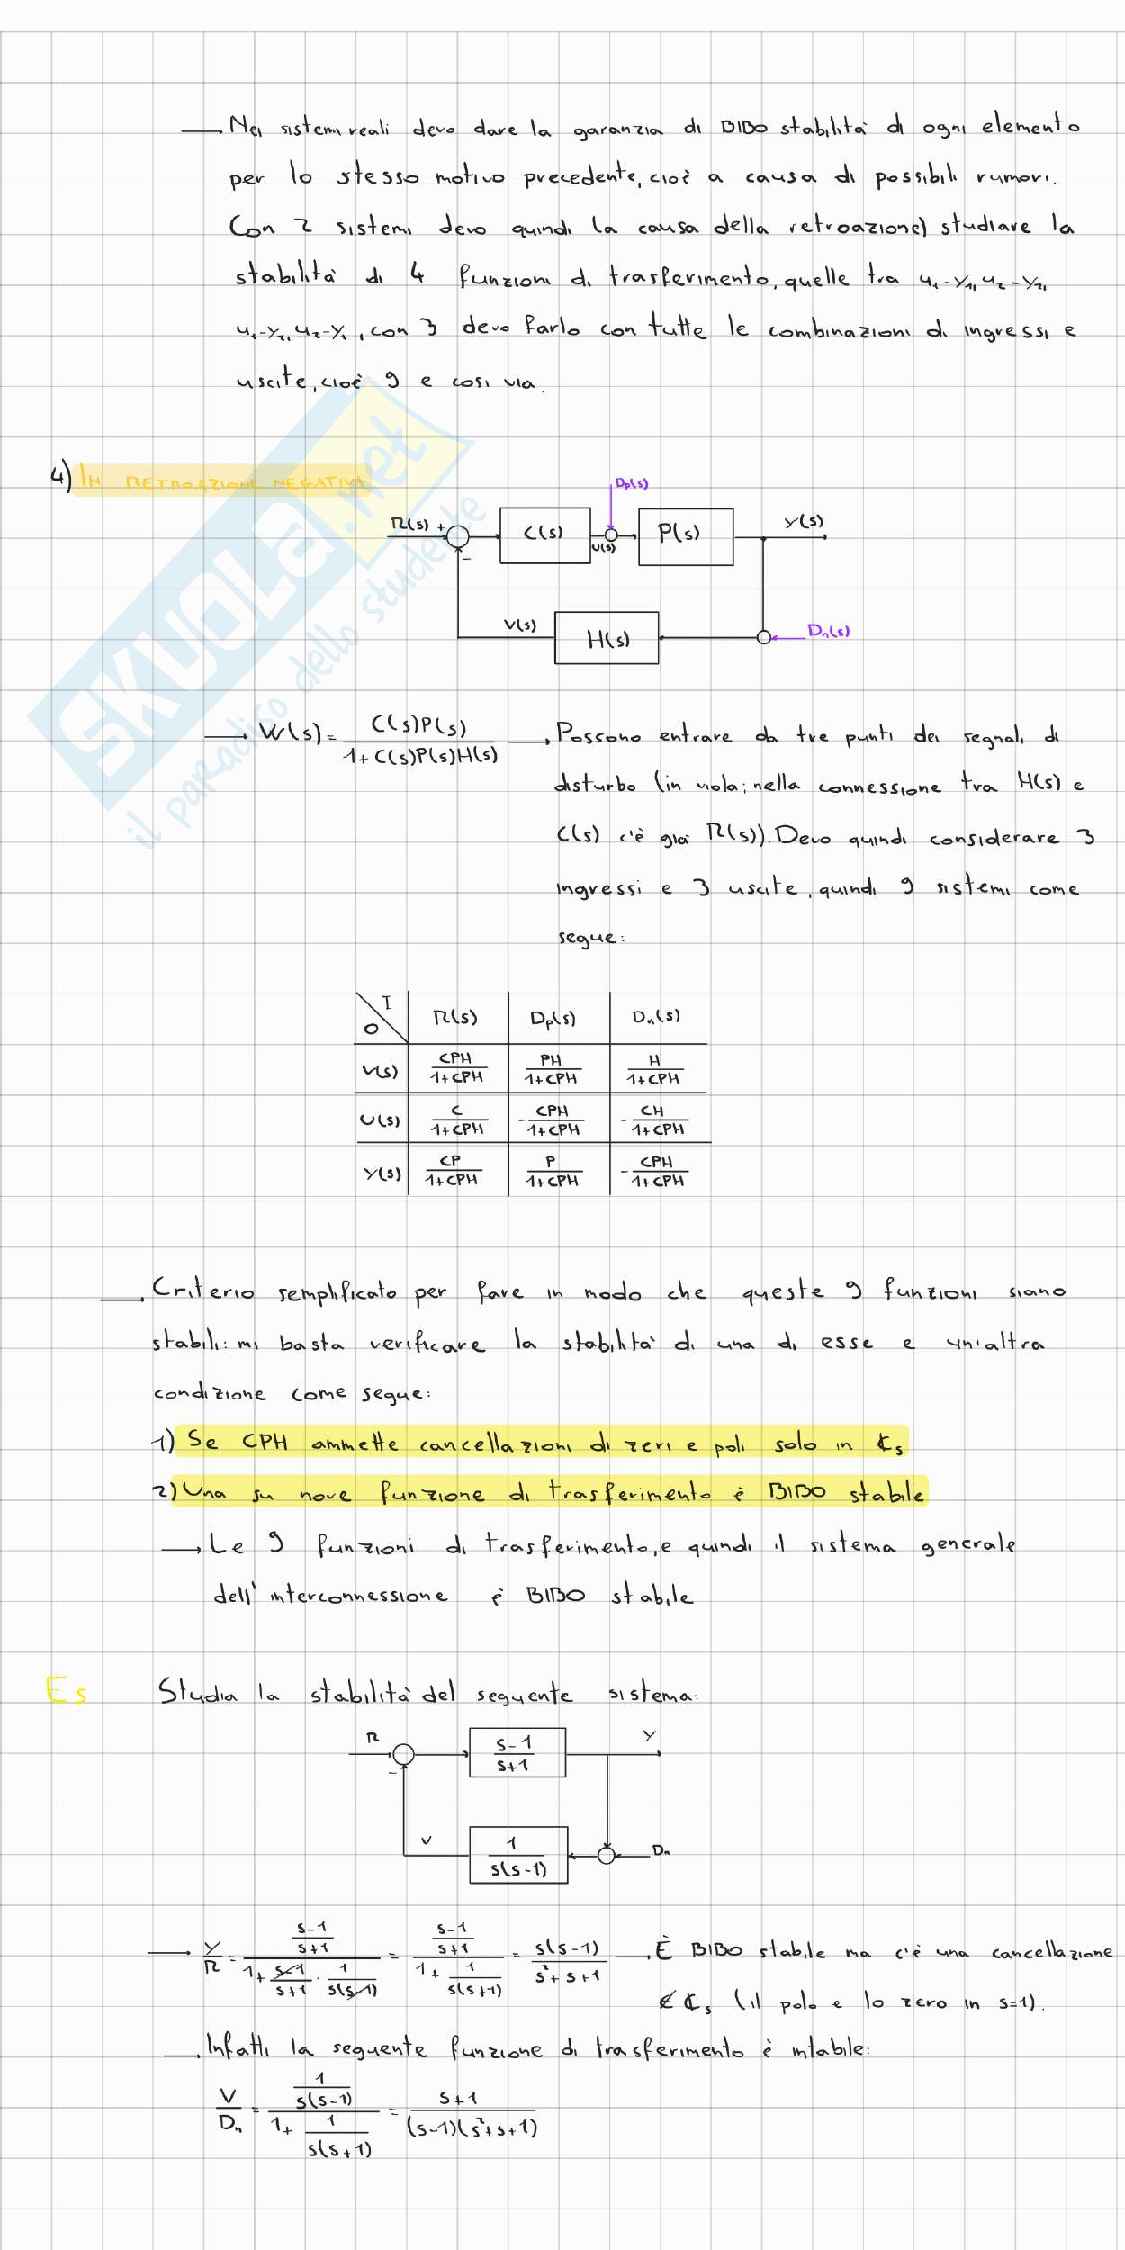 Nei sistemi reali devo dare la garanzia di BIBO stabilità di ogni elemento
per lo stesso motivo precedente, cioè a causa di possibili rumori.
Con 2 sistemi devo quindi (a causa della retroazione) studiare la
stabilità di 4 funzioni di trasferimento, quelle tra u₁-y₁, u₂-y₂,
u₁-y₂, u₂-y₁, con 3 devo farlo con tutte le combinazioni di ingressi e
uscite, cioè 9 e così via.
4) IN RETROAZIONE NEGATIVA
Dp(s)
R(s) + C(s) U(s) P(s) Y(s)
-
V(s) H(s) Dn(s)
→ W(s) = C(s)P(s) / 1+C(s)P(s)H(s) → Possono entrare da tre punti dei segnali di
disturbo (in viola; nella connessione tra H(s) e
C(s) c'è già R(s)). Devo quindi considerare 3
ingressi e 3 uscite, quindi 9 sistemi come
segue:
I O R(s) Dp(s) Dn(s)
V(s) CPH/1+CPH PH/1+CPH H/1+CPH
U(s) C/1+CPH -CPH/1+CPH -CH/1+CPH
Y(s) CP/1+CPH P/1+CPH -CPH/1+CPH
→ Criterio semplificato per fare in modo che queste 9 funzioni siano
stabili: mi basta verificare la stabilità di una di esse e un'altra
condizione come segue:
1) Se CPH ammette cancellazioni di zeri e poli solo in ℂs
2) Una su nove funzione di trasferimento è BIBO stabile
→ Le 9 funzioni di trasferimento, e quindi il sistema generale
dell'interconnessione è BIBO stabile
Es Studia la stabilità del seguente sistema:
R s-1/s+1 Y
-
V 1/s(s-1) Dn
→ Y/R = (s-1/s+1) / (1 + s-1/s+1 · 1/s(s-1)) = (s-1/s+1) / (1 + 1/s(s+1)) = s(s-1) / s²+s+1 → È BIBO stabile ma c'è una cancellazione
∉ ℂs (il polo e lo zero in s=1).
→ Infatti la seguente funzione di trasferimento è intabile:
V/Dn = (1/s(s-1)) / (1 + 1/s(s+1)) = s+1 / (s-1)(s²+s+1)
SKUOLA.net
il paradiso dello studente